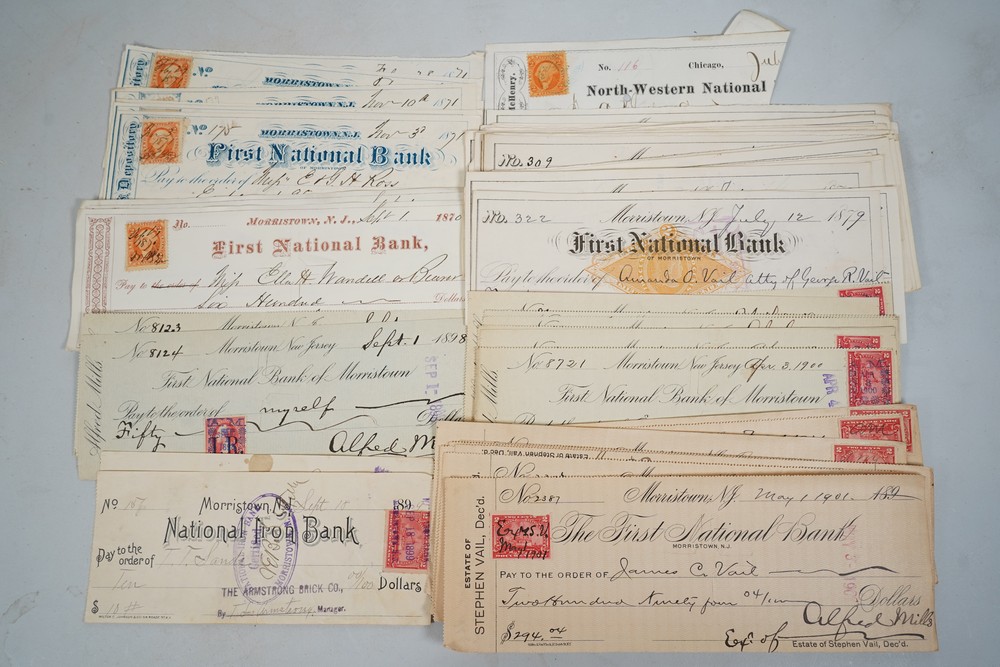 No
MORRISTOWN, N.J.
1871
Nov 10th 1871
No 175
MORRISTOWN, N.J.
Nov 3d 1871
Depository
First National Bank
OF MORRISTOWN
Pay to the order of Miss E & G. H. Ross
No.
MORRISTOWN, N. J., Sept 1 1870
First National Bank,
Pay to the order of Miss Ella H. Wandell or Bearer
Six Hundred
Dollars
No 8123
Morristown N
No 8124
Morristown New Jersey Sept. 1 1898
First National Bank of Morristown
Pay to the order of myself
Fifty
Dollars
I.R.
Alfred Mills
Alfred M
No
Morristown, N.J. Sept 18 189
National Iron Bank
Pay to the
order of
Ten
Dollars
THE ARMSTRONG BRICK CO.,
By
Manager.
$
McHenry.
No. 116
Chicago, July
North-Western National
No. 309
No. 322
Morristown, N.J. July 12 1879
First National Bank
OF MORRISTOWN
Pay to the order of Amanda C. Vail atty of George R. Vail
No 8721
Morristown New Jersey Apr. 3, 1900
First National Bank of Morristown
APR 4
Mills
Estate of Stephen Vail, Dec'd.
No 2387
Morristown, N.J. May 1 1901 189
The First National Bank
MORRISTOWN, N.J.
ESTATE OF
STEPHEN VAIL, Dec'd.
Ex S.V.
May 1 1901
PAY TO THE ORDER OF James C. Vail
Two Hundred Ninety four 04/100 Dollars
$294.04
Alfred Mills
Ex. of
Estate of Stephen Vail, Dec'd.